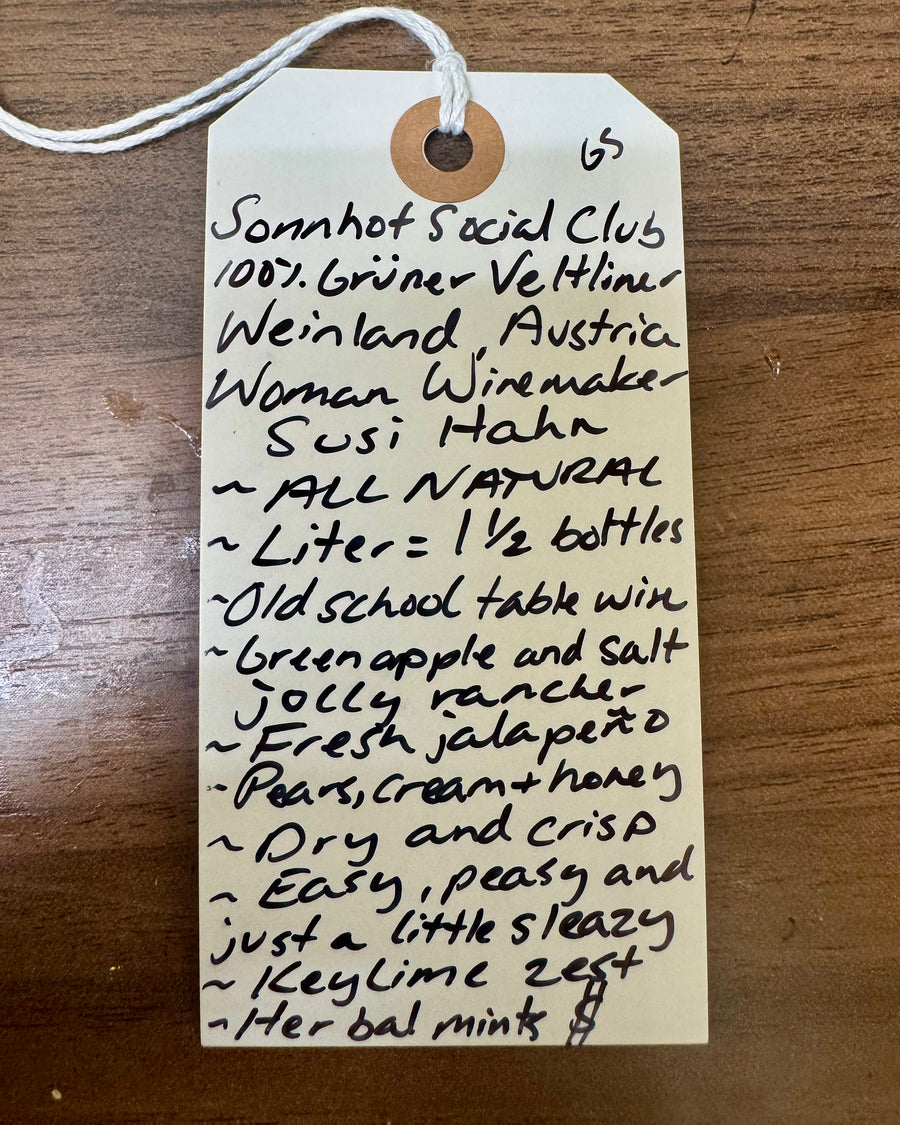 GS
Sonnhof Social Club
100% Grüner Veltliner
Weinland, Austria
Woman Winemaker
Susi Hahn
~ ALL NATURAL
~ Liter = 1 1/2 bottles
~ Old school table wine
~ Green apple and salt
jolly rancher
~ Fresh jalapeño
~ Pears, cream + honey
~ Dry and crisp
~ Easy, peasy and
just a little sleazy
~ Key lime zest
~ Herbal mints $